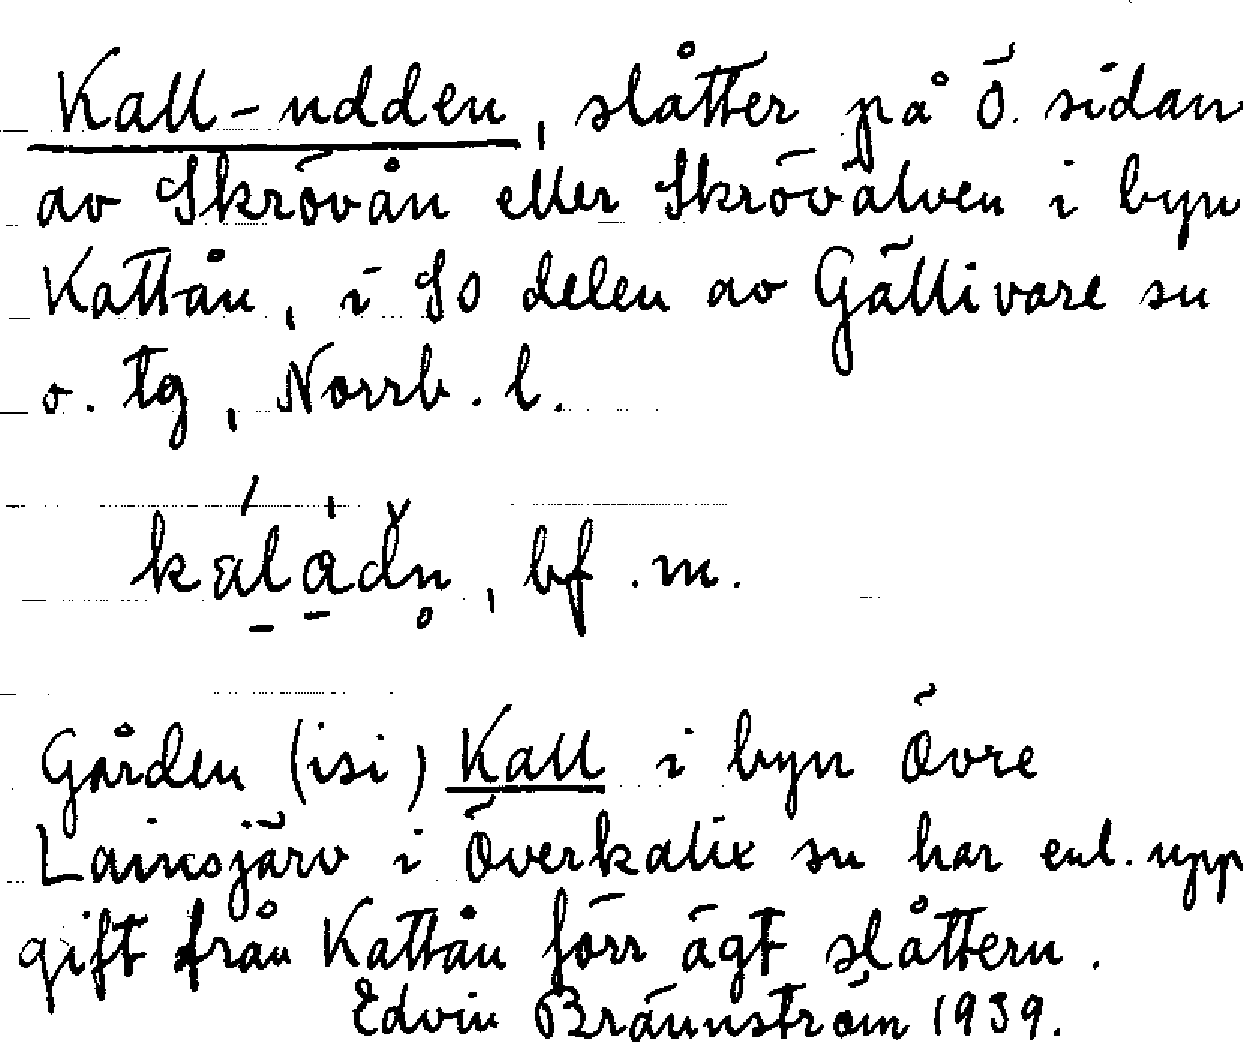 Kall-udden, slåtter på Ö. sidan
av Skrövån eller Skrövälven i byn
Kattån, i SO delen av Gällivare sn
o. tg, Norrb. l.
bf. m.
Gården (isi) Kall i byn Övre
Lainesjärv i Överkalix sn har enl. upp
gift från Kattån förr ägt slåttern.
Edvin Brännström 1939.